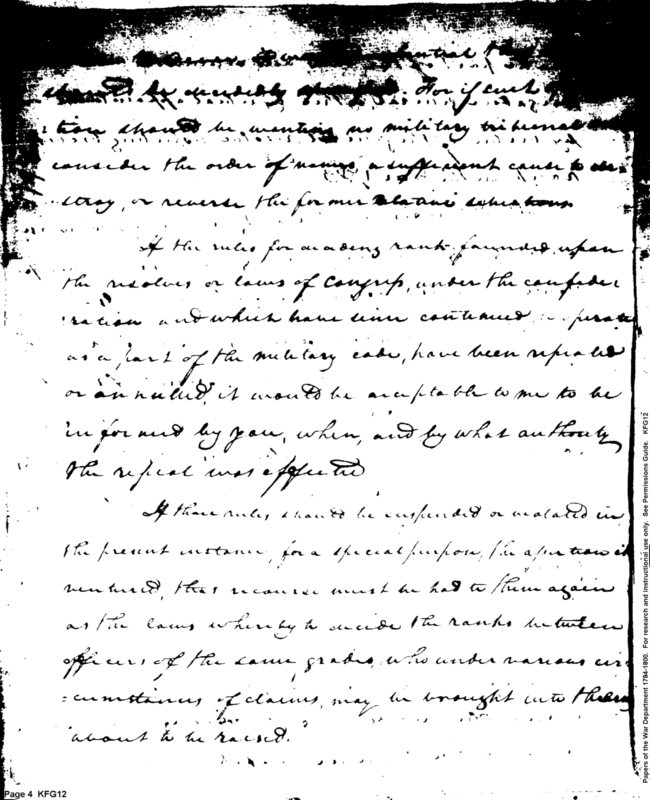 should be decidedly For if such
tion should be wanting no military tribunal
consider the order of names, a sufficient cause to de=
stroy, or reverse the former relative situations
If the rules for deciding rank, founded upon
the resolves or laws of Congress, under the confede
ration and which have since continued to operate
as a part of the military code, have been repealed
or annulled, it would be acceptable to me to be
informed by you, when, and by what authority
the repeal was effected
If those rules should be suspended or violated in
the present instance, for a special purpose, the assertion is
ventured, that recourse must be had to them again
as the laws whereby to decide the ranks between
officers of the same grades, who under various cir
=cumstances of claims, may be brought into the army
about to be raised."
Page 4 KFG12
Papers of the War Department 1784-1800. For research and instructional use only. See Permissions Guide. KFG12